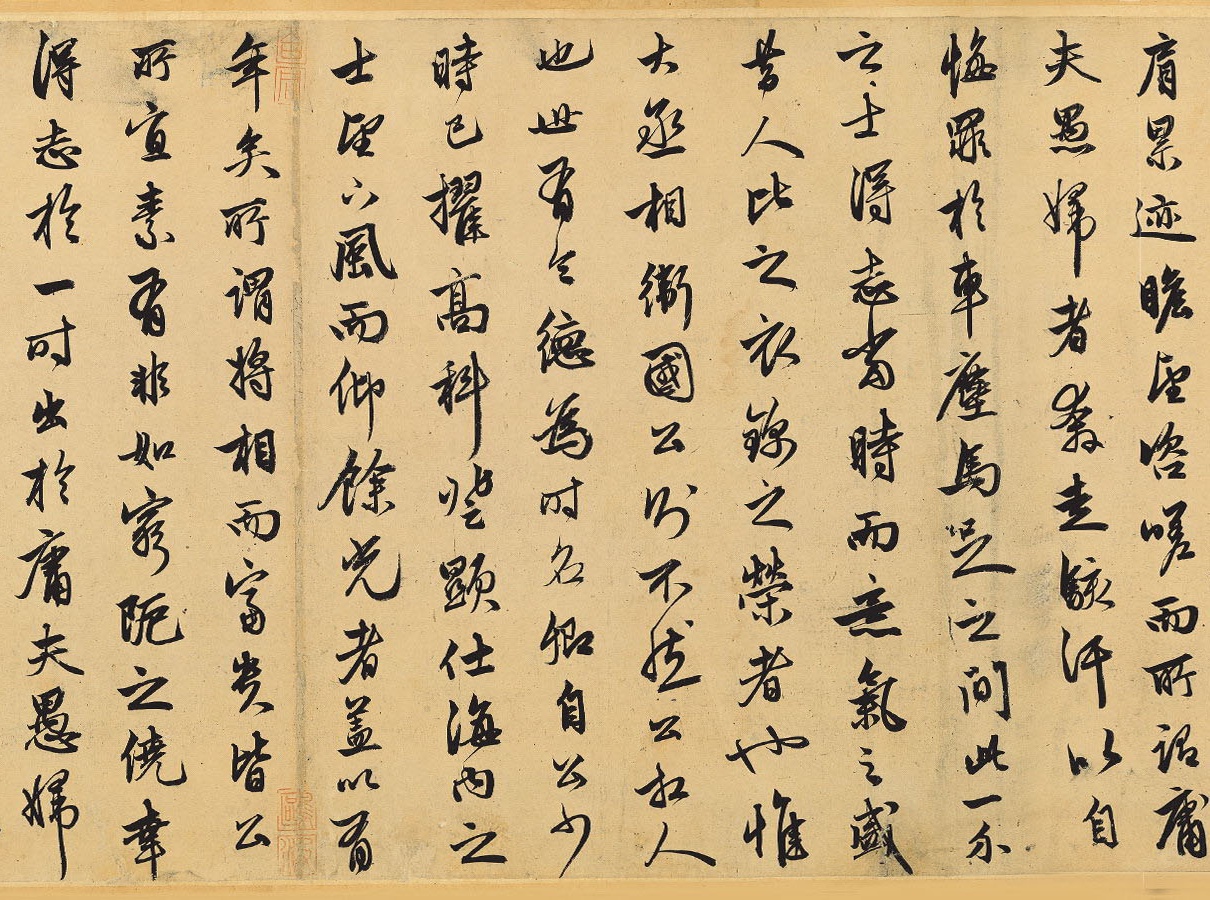 肩累迹瞻望咨嗟而所謂庸
夫愚婦者奔走駭汗以自
悔罪於車塵馬足之間此一介
之士得志當時而意氣之盛
昔人比之衣錦之榮者也惟
大丞相衛國公則不然公相人
也世有令德為時名卿自公少
時已擢高科登顯仕海內之
士望下風而仰餘光者蓋以有
年矣所謂將相而富貴皆公
所宜素有非如窮阨之僥幸
得志於一時出於庸夫愚婦